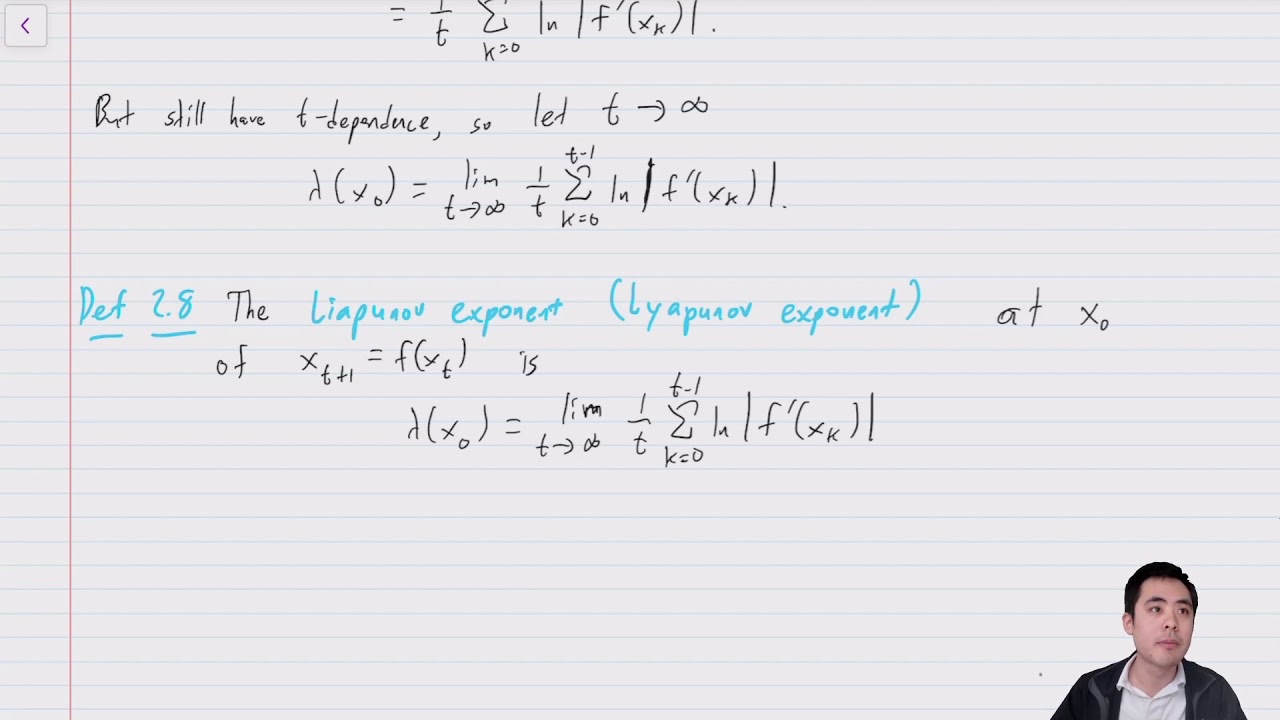 = 1/t Σ_{k=0} ln |f'(x_k)|.
But still have t-dependence, so let t → ∞
λ(x_0) = lim_{t→∞} 1/t Σ_{k=0}^{t-1} ln |f'(x_k)|.
Def 2.8 The Liapunov exponent (Lyapunov exponent) at x_0
of x_{t+1} = f(x_t) is
λ(x_0) = lim_{t→∞} 1/t Σ_{k=0}^{t-1} ln |f'(x_k)|